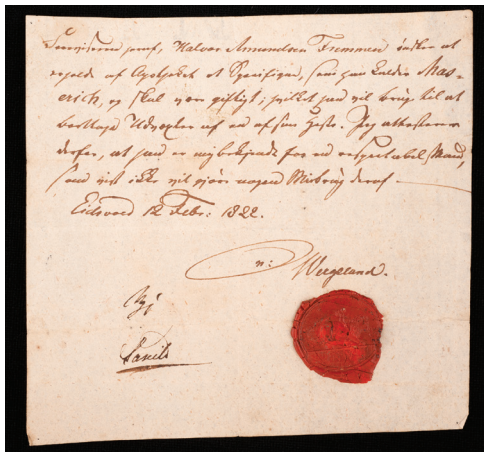 Halvor Amundsen Tremmen ønsker at
af Apotheket et Specificum, som han kalder Mas-
erich, og skal være giftigt; hvilket han vil bruge til at
borttage Udvexter af en af sine Heste. Jeg attesterer
derfor, at han er mig bekjendt for en respectabel Mand,
som vist ikke vil gjøre nogen Misbrug deraf.
Eidsvold 12 Febr: 1822.
n: Wergeland.